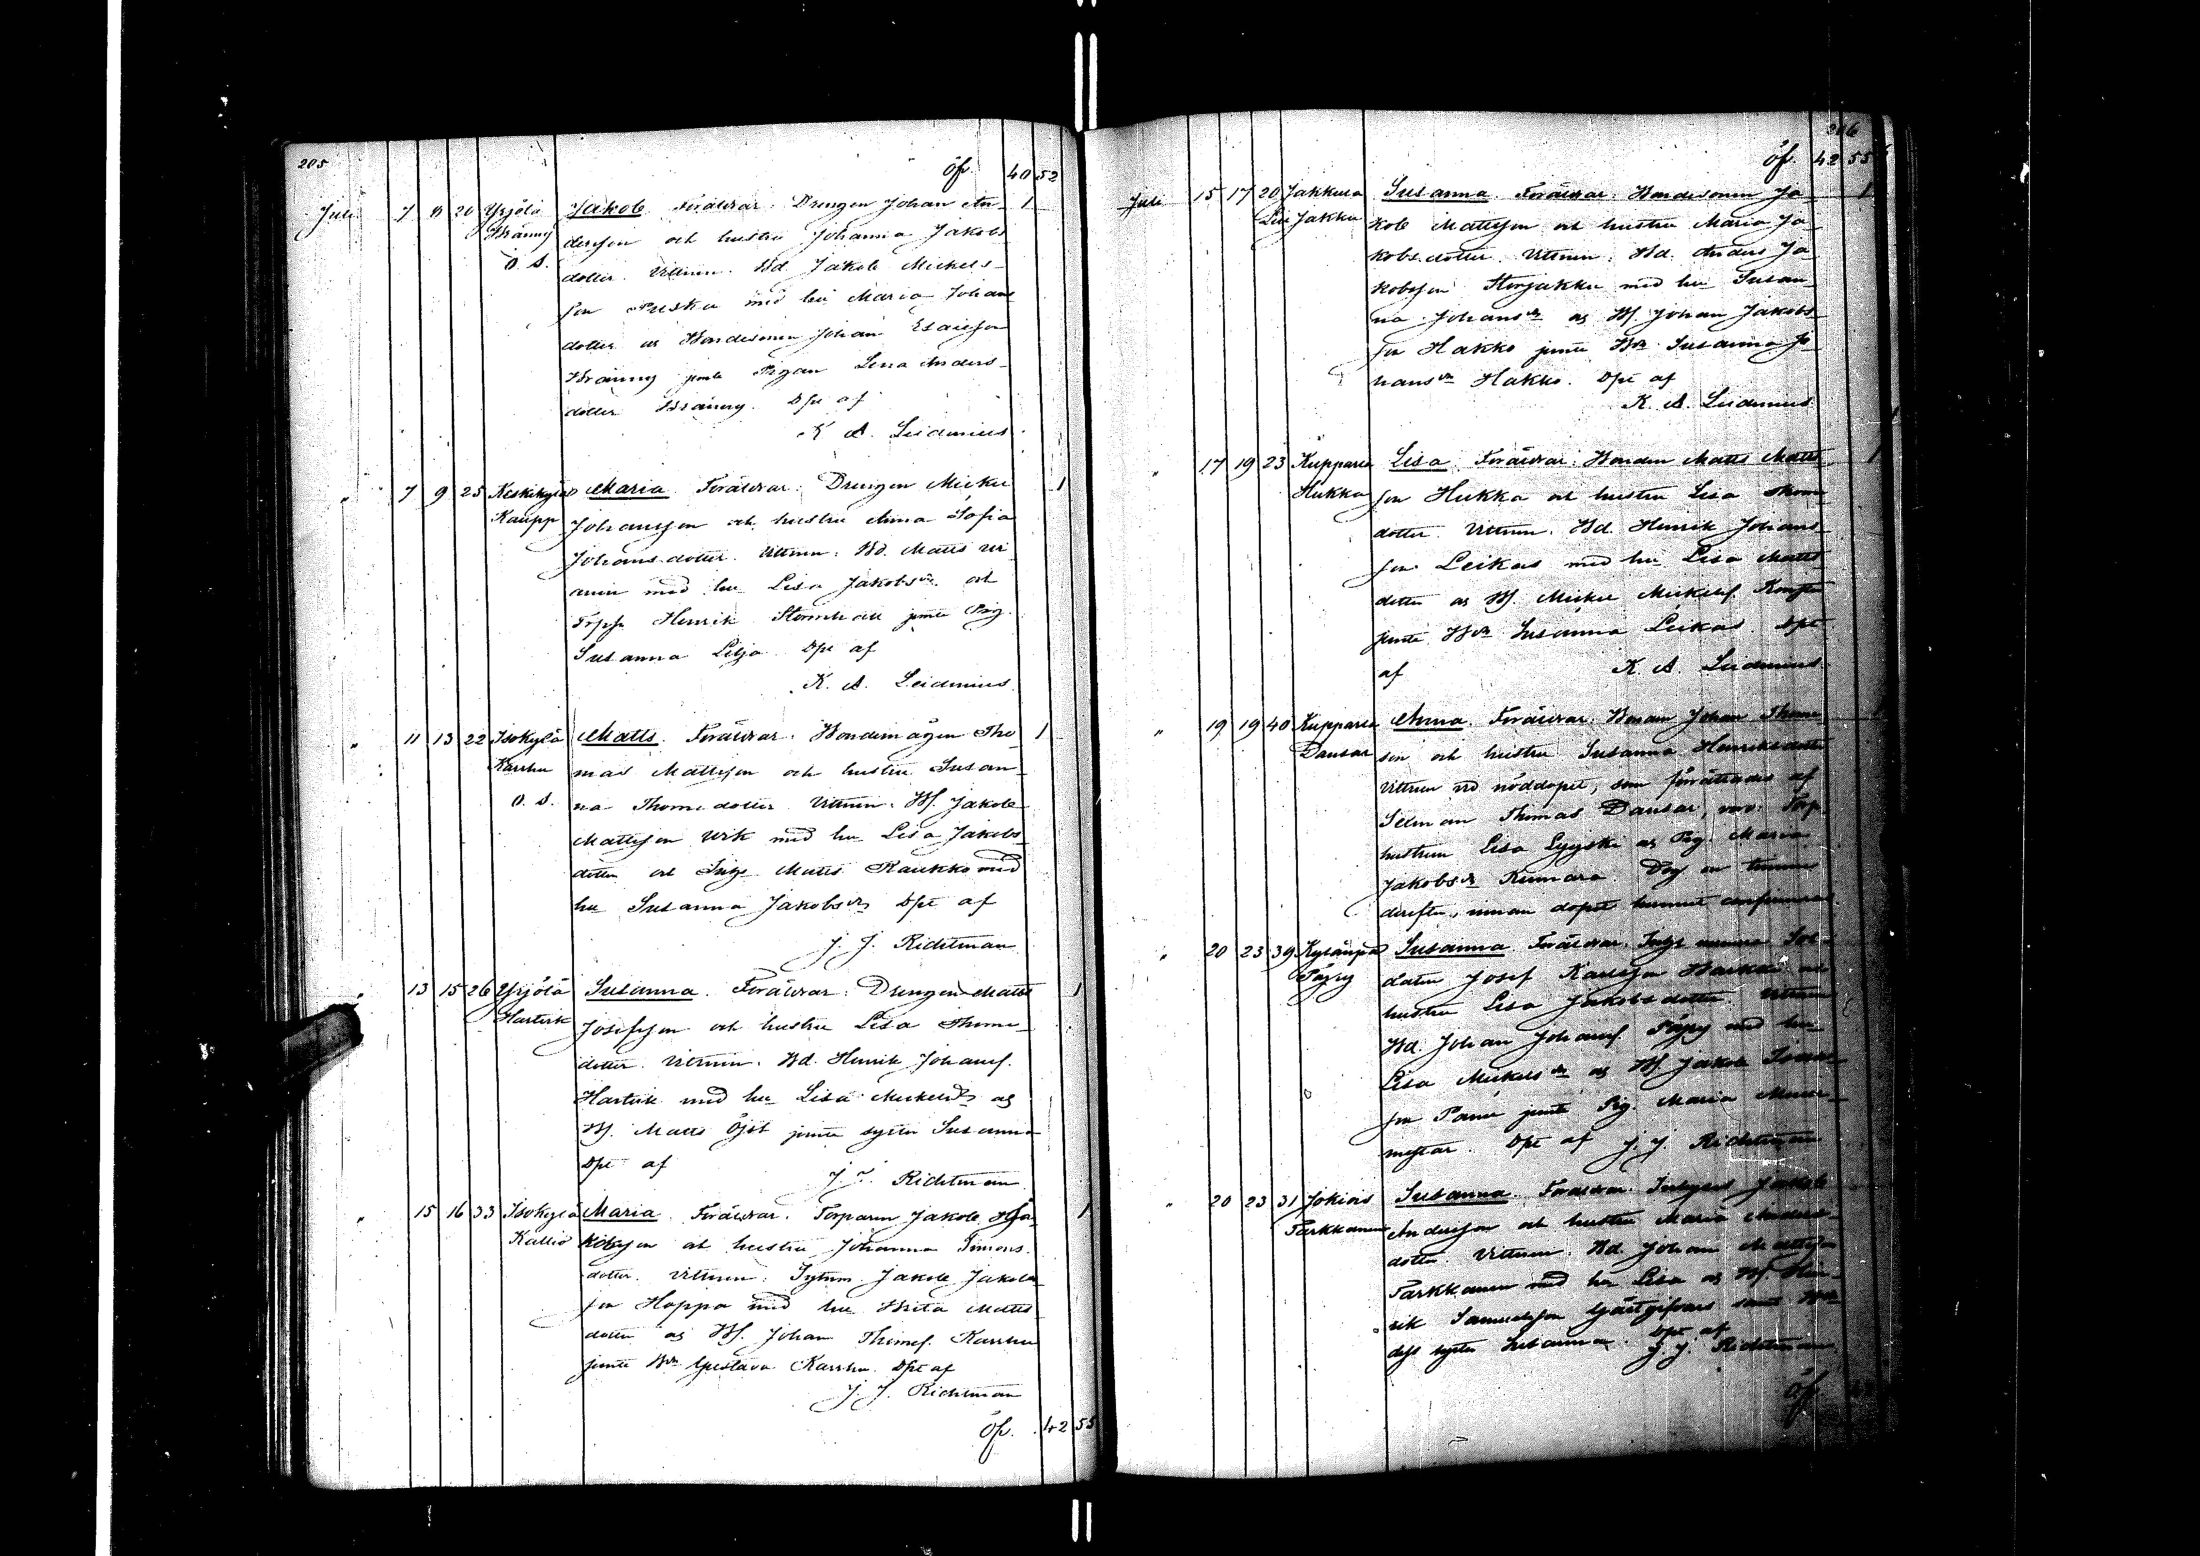 205
Öfv. 40 52
Juli 7 8 20 Yrjölä Jakob. Föräldrar: Drengen Johan An- 1
Bränny dersson och hustru Johanna Jakobs
o. ä. dotter. Vittnen: Bd. Jakob Mickels-
son Puska med hu Maria Johans
dotter as Bondesonen Johan Esaiesson
Bränny jemte Pigan Lena Anders-
dotter Bränny. Dpt af
K. A. Leidenius
" 7 9 25 Keskikylä Maria. Föräldrar: Drengen Mickel 1
Kaupp Johansson och hustru Anna Sofia
Johansdotter. Vittnen: Bd. Matts
med hu Lisa Jakobsdr och
Henrik jemte Pig.
Susanna Lilja. Dpt af
K. A. Leidenius
" 11 13 22 Isokylä Matts. Föräldrar: Bondemågen Tho- 1
Karhu mas Mattsson och hustru Susan-
o. ä. na Thomedotter. Vittnen: Bs. Jakob
Mattsson med hu Lisa Jakobs
dotter och Inhs Matts Kaukko med
hu Susanna Jakobsdr Dpt af
J. J. Richtman
" 13 15 26 Yrjölä Susanna. Föräldrar: Drengen Matts 1
Hartvik Josefsson och hustru Lisa Thome-
dotter. Vittnen: Bd. Henrik Johanss.
Hartvik med hu Lisa Mickelsdr as
Bs. Matts Öjst jemte syster Susanna
Dpt af
J. J. Richtman
" 15 16 33 Isokylä Maria. Föräldrar: Torparen Jakob Ja- 1
Kallio kobsson och hustru Johanna Simons-
dotter. Vittnen: Sytnm. Jakob Jakobs
son Hoppa med hu Brita Matts
dotter as Bs. Johan Thomes. Karhu
jemte Bdr Gustava Karhu. Dpt af
J. J. Richtman
Öfv. 42 55
206
Öfv. 42 55
Juli 15 17 20 Jakkula Susanna. Föräldrar: Bondesonen Ja- 1
Jakku kob Mattsson och hustru Maria Ja-
kobsdotter. Vittnen: Bd. Anders Ja-
kobsson Storjakku med hu Susan-
na Johansdr as Bs. Johan Jakobs
son Hakko jemte Bdr Susanna Jo-
hansdr Hakko. Dpt af
K. A. Leidenius
" 17 19 23 Kupparla Lisa. Föräldrar: Bonden Matts Matts 1
Hukka son Hukka och hustru Lisa Thome
dotter. Vittnen: Bd. Henrik Johans-
son Leikas med hu Lisa Matts
dotter as Bs. Mickel Mickelss.
jemte Bdr Susanna Leikas. Dpt
af K. A. Leidenius
" 19 19 40 Kupparla Anna. Föräldrar: Bonden Johan Thome-
Dansar son och hustru Susanna Henriksdotter
Vittnen vid nöddopet, som förrättades af
Thomas Dansar, voro: Torp.
hustrun Lisa Lyyski as Pig. Maria
Jakobsdr. Dog en timme
derefter, innan dopet hunnit confirmeras
" 20 23 39 Kylänpä Susanna. Föräldrar: Inhs Sol-
Päyry daten Josef Karlsson och
hustru Lisa Jakobsdotter. Vittnen
Bd. Johan Johanss. Päyry med hu
Lisa Mickelsdr as Bs. Jakob
son jemte Pig. Maria Murar-
mestar. Dpt af J. J. Richtman
" 20 23 31 Jokiois Susanna. Föräldrar: Inhyses Jakob
Parkkamen Andersson och hustru Maria Anders-
dotter. Vittnen: Bd. Johan Mattsson
Parkkamen med hu Lisa as Bs. Hen-
rik Samuelsson Gästgifvars samt
dess syster Susanna. Dpt af
J. J. Richtman
Öfv.